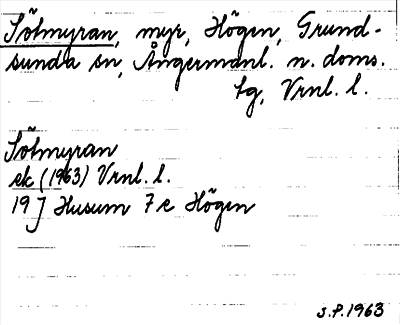 Sötmyran, myr, Högen, Grund-
sunda sn, Ångermanl. n. doms.
tg, Vrnl. l.
Sötmyran
ek (1963) Vrnl. l.
19 J Husum 7 e Högen
S.P. 1963